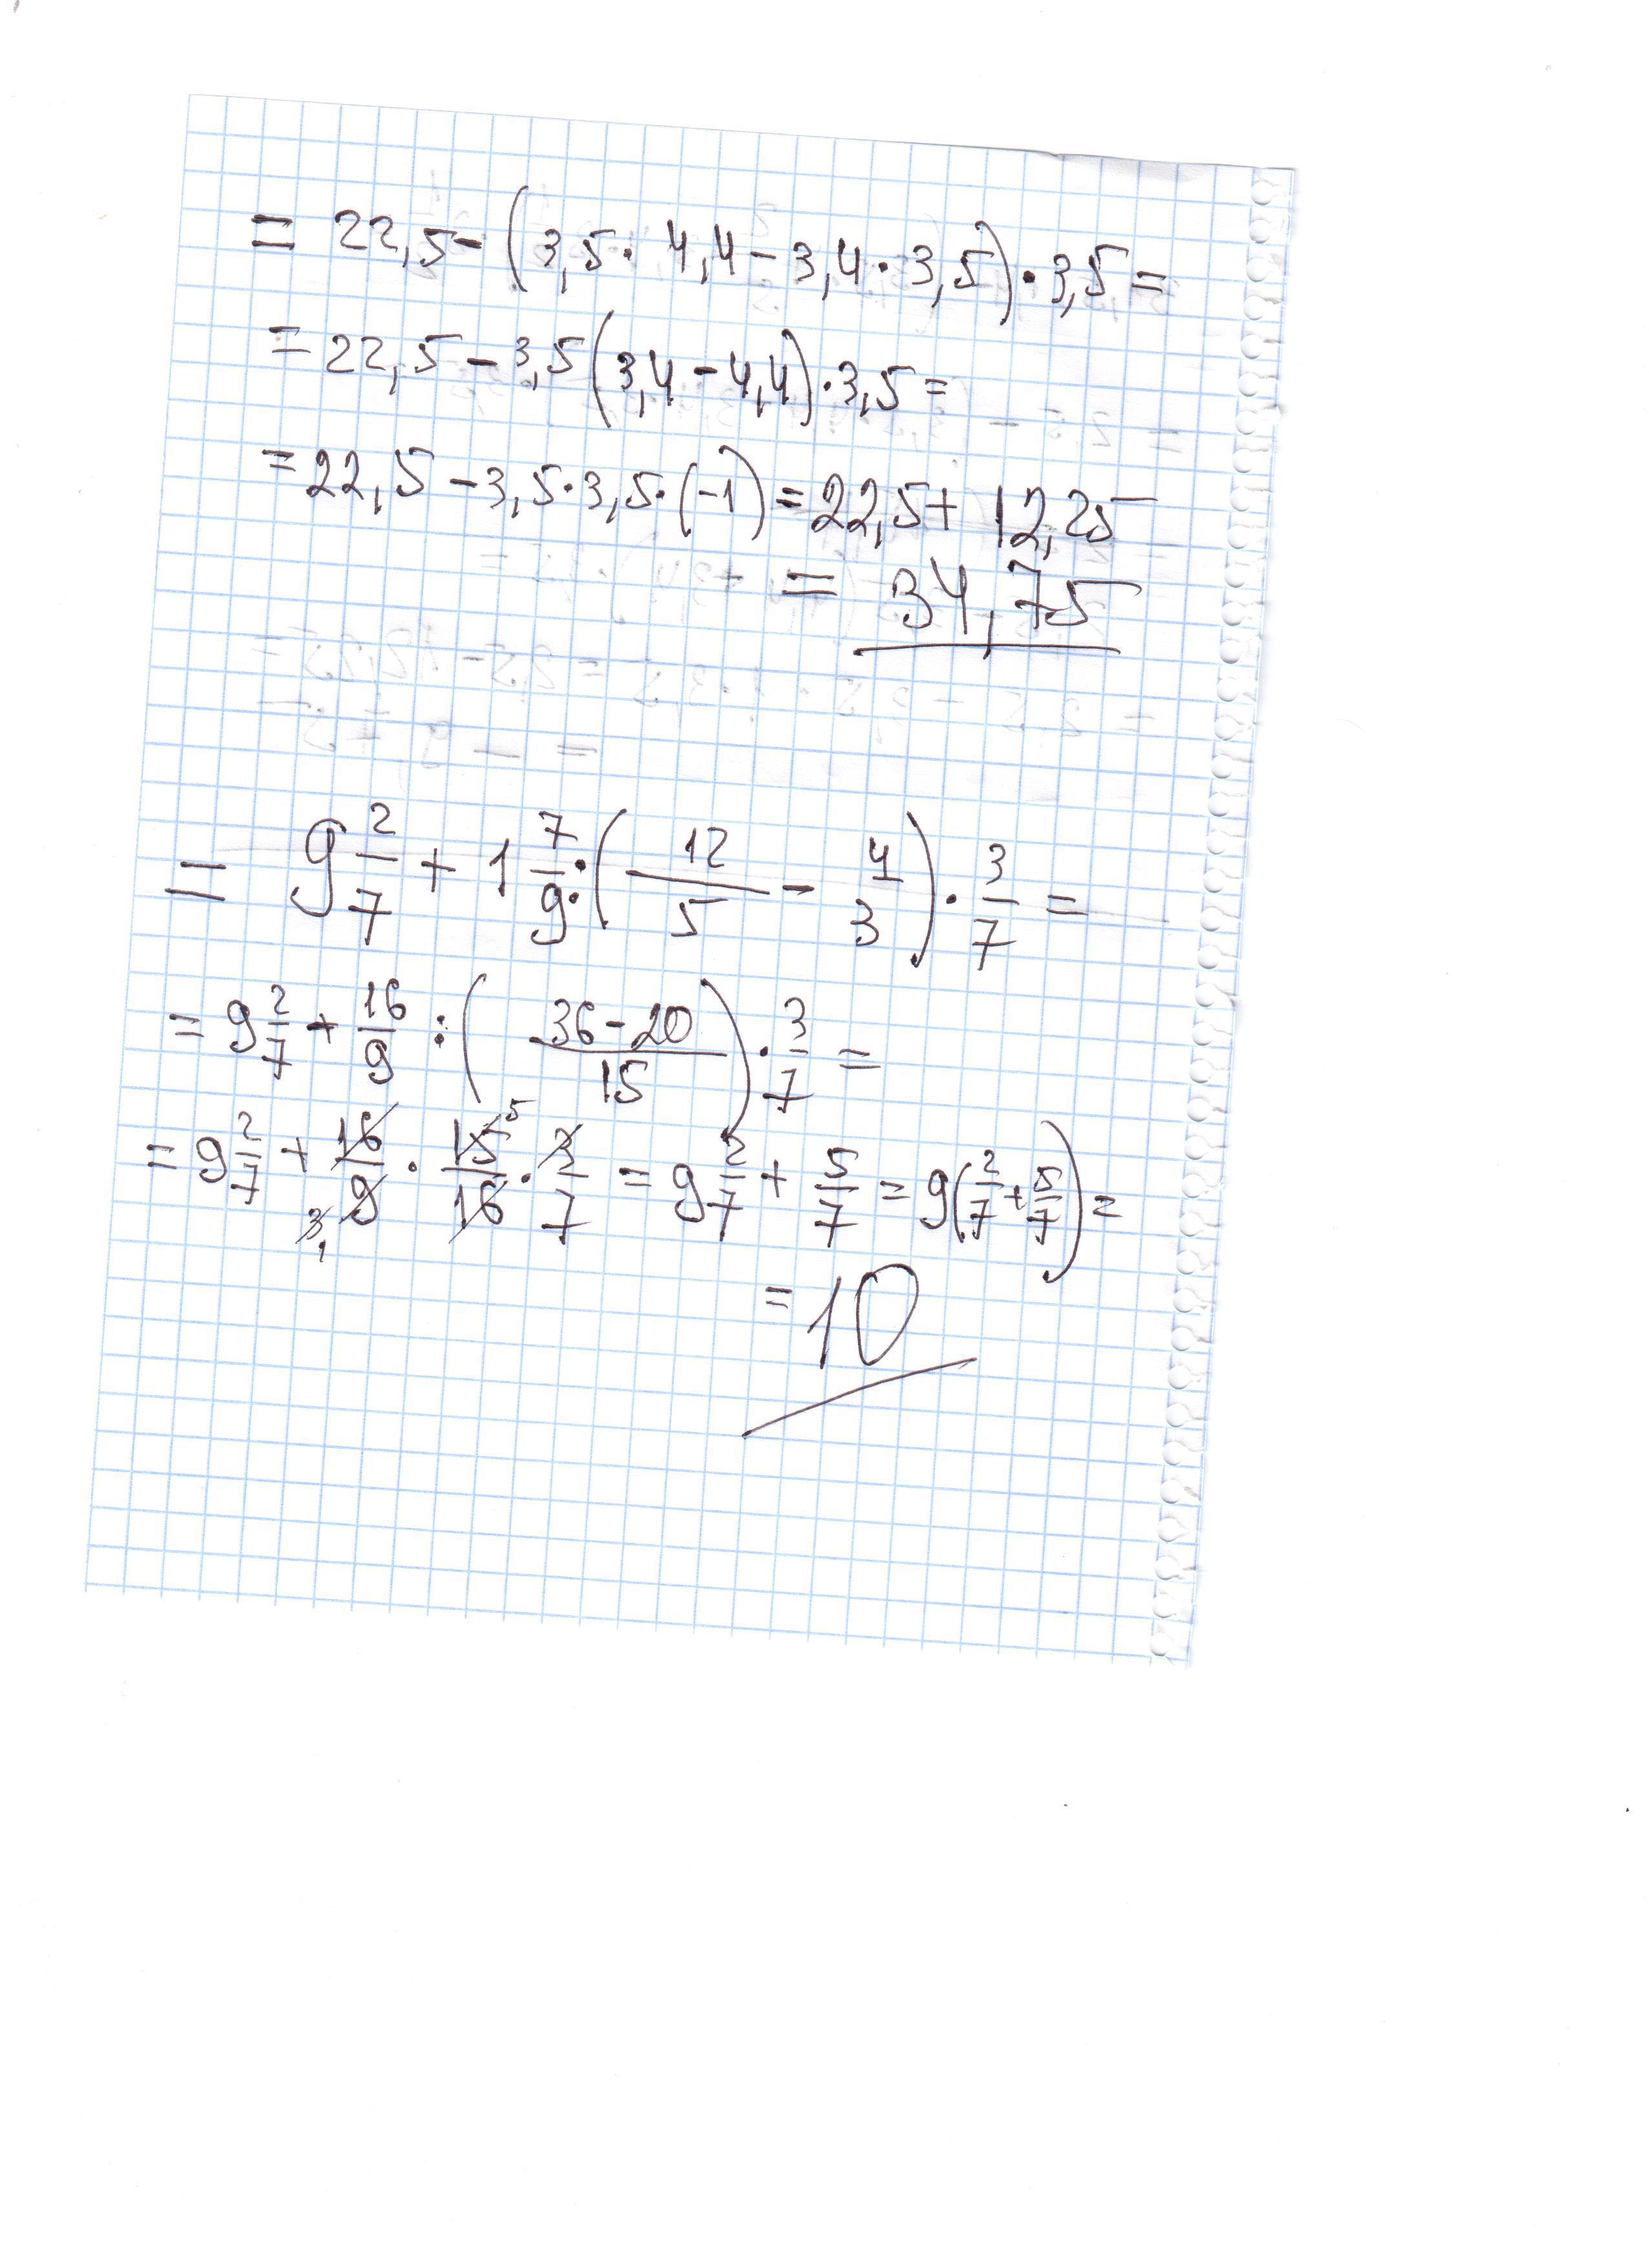 = 22,5 - (3,5 · 4,4 - 3,4 · 3,5) · 3,5 =
= 22,5 - 3,5 (3,4 - 4,4) · 3,5 =
= 22,5 - 3,5 · 3,5 · (-1) = 22,5 + 12,25
= 34,75
= 9 2/7 + 1 7/9 : (12/5 - 4/3) · 3/7 =
= 9 2/7 + 16/9 : (36 - 20/15) · 3/7 =
= 9 2/7 + 16/9 3 1 · 15/16 5 · 3/7 = 9 2/7 + 5/7 = 9 (2/7 + 5/7) =
= 10